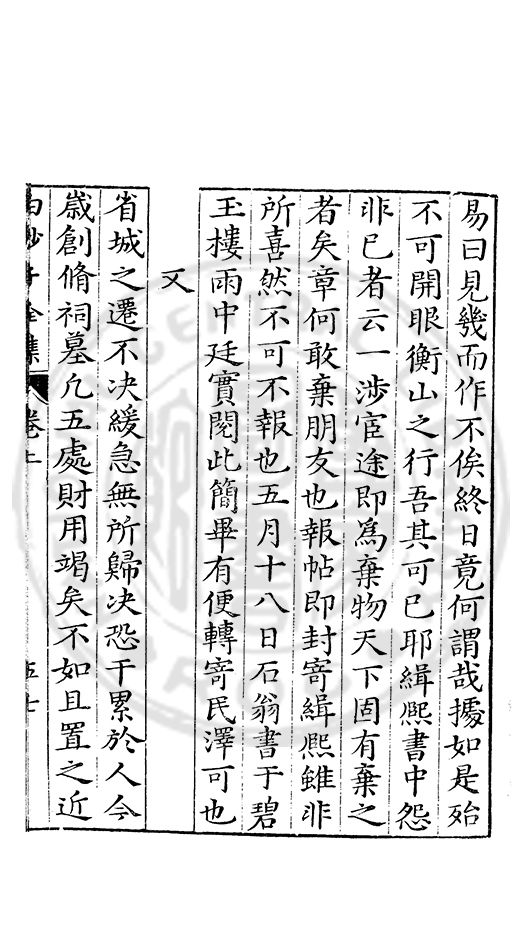 易曰見幾而作不俟終日竟何謂哉據如是殆
不可開眼衡山之行吾其可已耶緝熈書中怨
非已者云一涉宦途即爲棄物天下固有棄之
者矣章何敢棄朋友也報帖即封寄緝熈雖非
所喜然不可不報也五月十八日石翁書于碧
玉樓雨中廷實閱此簡畢有便轉寄民澤可也
又
省城之遷不决緩急無所歸决恐干累於人今
嵗創脩祠墓凢五處財用竭矣不如且置之近
白沙子全集 卷二 五七